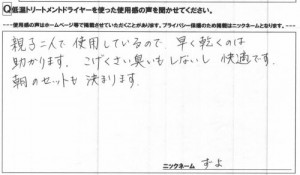 Q低温トリートメントドライヤーを使った使用感の声を聞かせてください。
使用感の声はホームページ等で掲載させていただくことがあります。プライバシー保護のため掲載はニックネームとなります。
親子二人で使用しているので、早く乾くのは
助かります。こげくさい臭いもしないし快適です。
朝のセットも決まります。
ニックネーム すよ